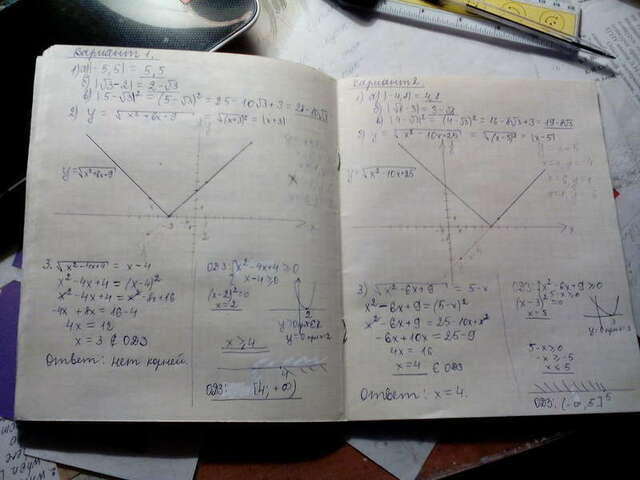 Вариант 1.
1) а) |-5,5| = 5,5
б) |√3-2| = 2-√3
в) |5-√3|² = (5-√3)² = 25-10√3+3 = 28-10√3
2) y = √x²+6x+9 y = √(x+3)² = |x+3|
y=√x²+6x+9
-3
3. √x²-4x+4 = x-4
x²-4x+4 = (x-4)²
x²-4x+4 = x²-8x+16
-4x+8x = 16-4
4x = 12
x = 3 ∉ ОДЗ
Ответ: нет корней.
ОДЗ: x²-4x+4 ≥ 0
x-4 ≥ 0
(x-2)²=0
x=2
2
x ≥ 4
4
ОДЗ: [4; +∞)
Вариант 2.
1) а) |-4,2| = 4,2
в) (4-√3)² = 16-8√3+3 = 19-8√3
2) y = √x²-10x+25 = √(x-5)² = |x-5|
y=√x²-10x+25
3) √x²-6x+9 = 5-x
x²-6x+9 = (5-x)²
x²-6x+9 = 25-10x+x²
-6x+10x = 25-9
4x = 16
x=4 ∈ ОДЗ
Ответ: x=4.
ОДЗ: x²-6x+9 ≥ 0
5-x ≥ 0
(x-3)²=0
x=3
5-x ≥ 0
-x ≥ -5
x ≤ 5
5
ОДЗ: (-∞; 5]